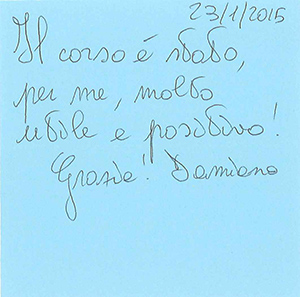 23/1/2015
Il corso é stato,
per me, molto
utile e positivo!
Grazie! Damiano